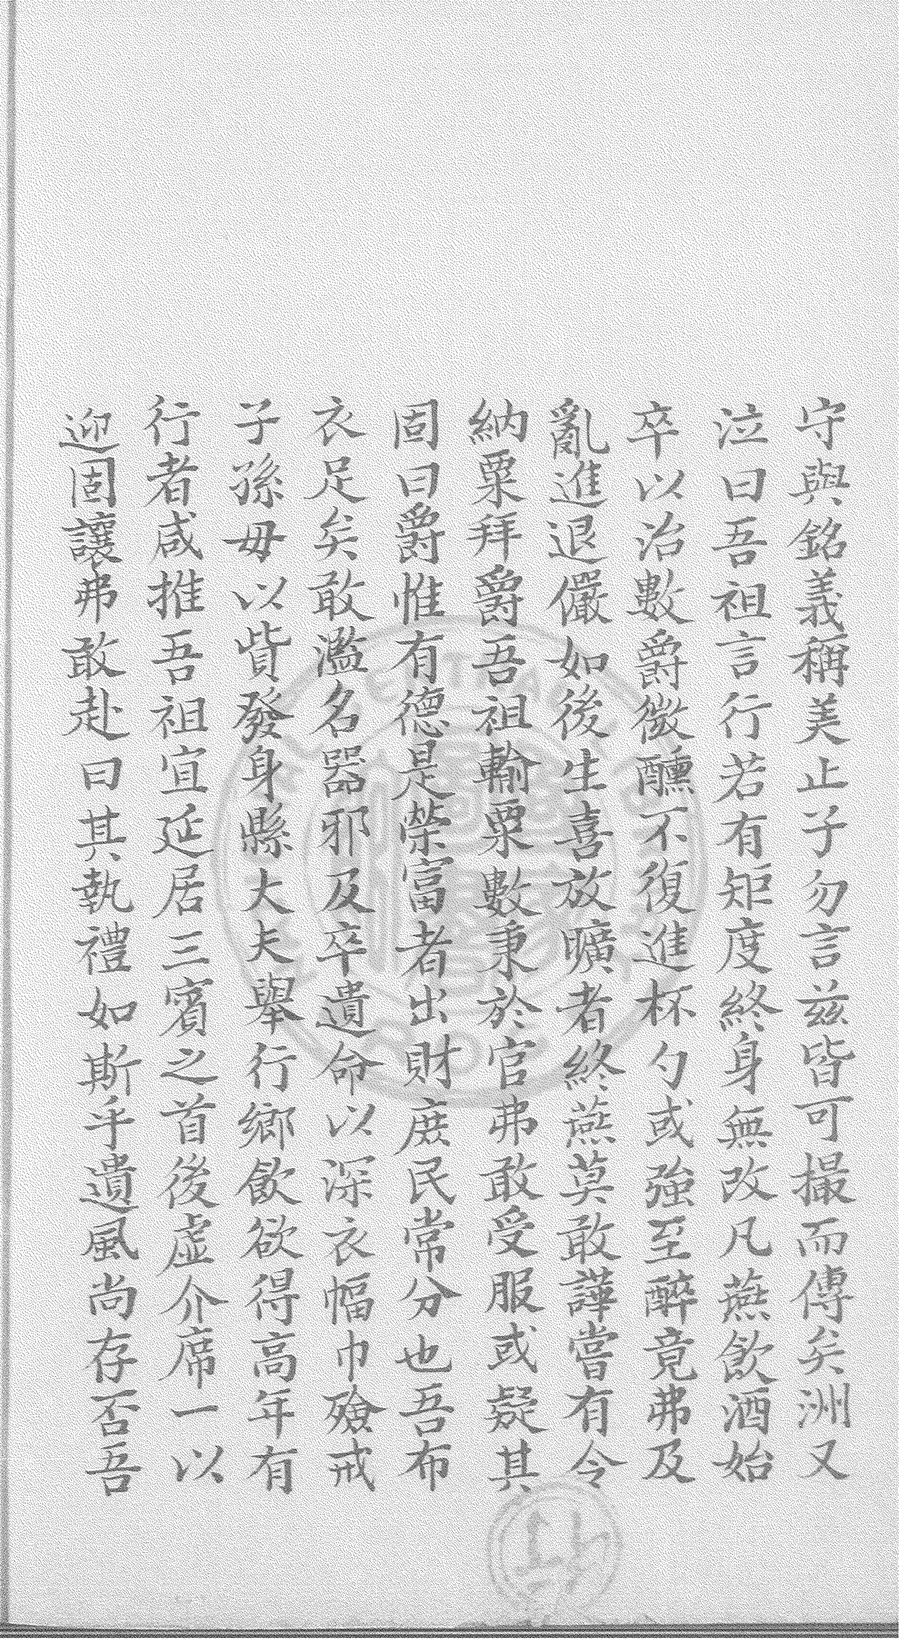 守與銘義稱美止子勿言茲皆可撮而傳矣洲又
泣曰吾祖言行若有矩度終身無改凡燕飲酒始
卒以治數爵微醺不復進杯勺或強至醉竟弗及
亂進退儼如後生喜放曠者終燕莫敢譁嘗有令
納粟拜爵吾祖輸粟數秉於官弗敢受服或疑其
固曰爵惟有德是榮富者出財庶民常分也吾布
衣足矣敢濫名器邪及卒遺命以深衣幅巾殮戒
子孫毋以貲發身縣大夫舉行鄉飲欲得高年有
行者咸推吾祖宜延居三賓之首後虛介席一以
迎固讓弗敢赴曰其執禮如斯乎遺風尚存否吾